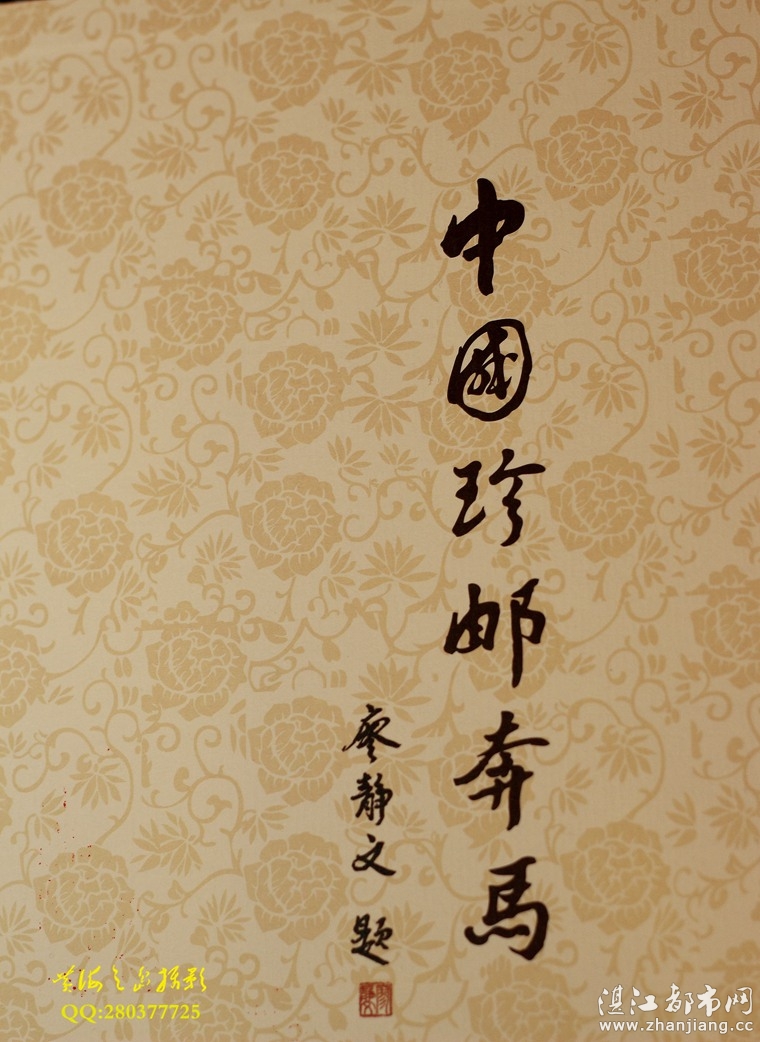 中國珍邮奔馬
廖靜文題
QQ:280377725
湛江都市网
www.zhanjiang.cc